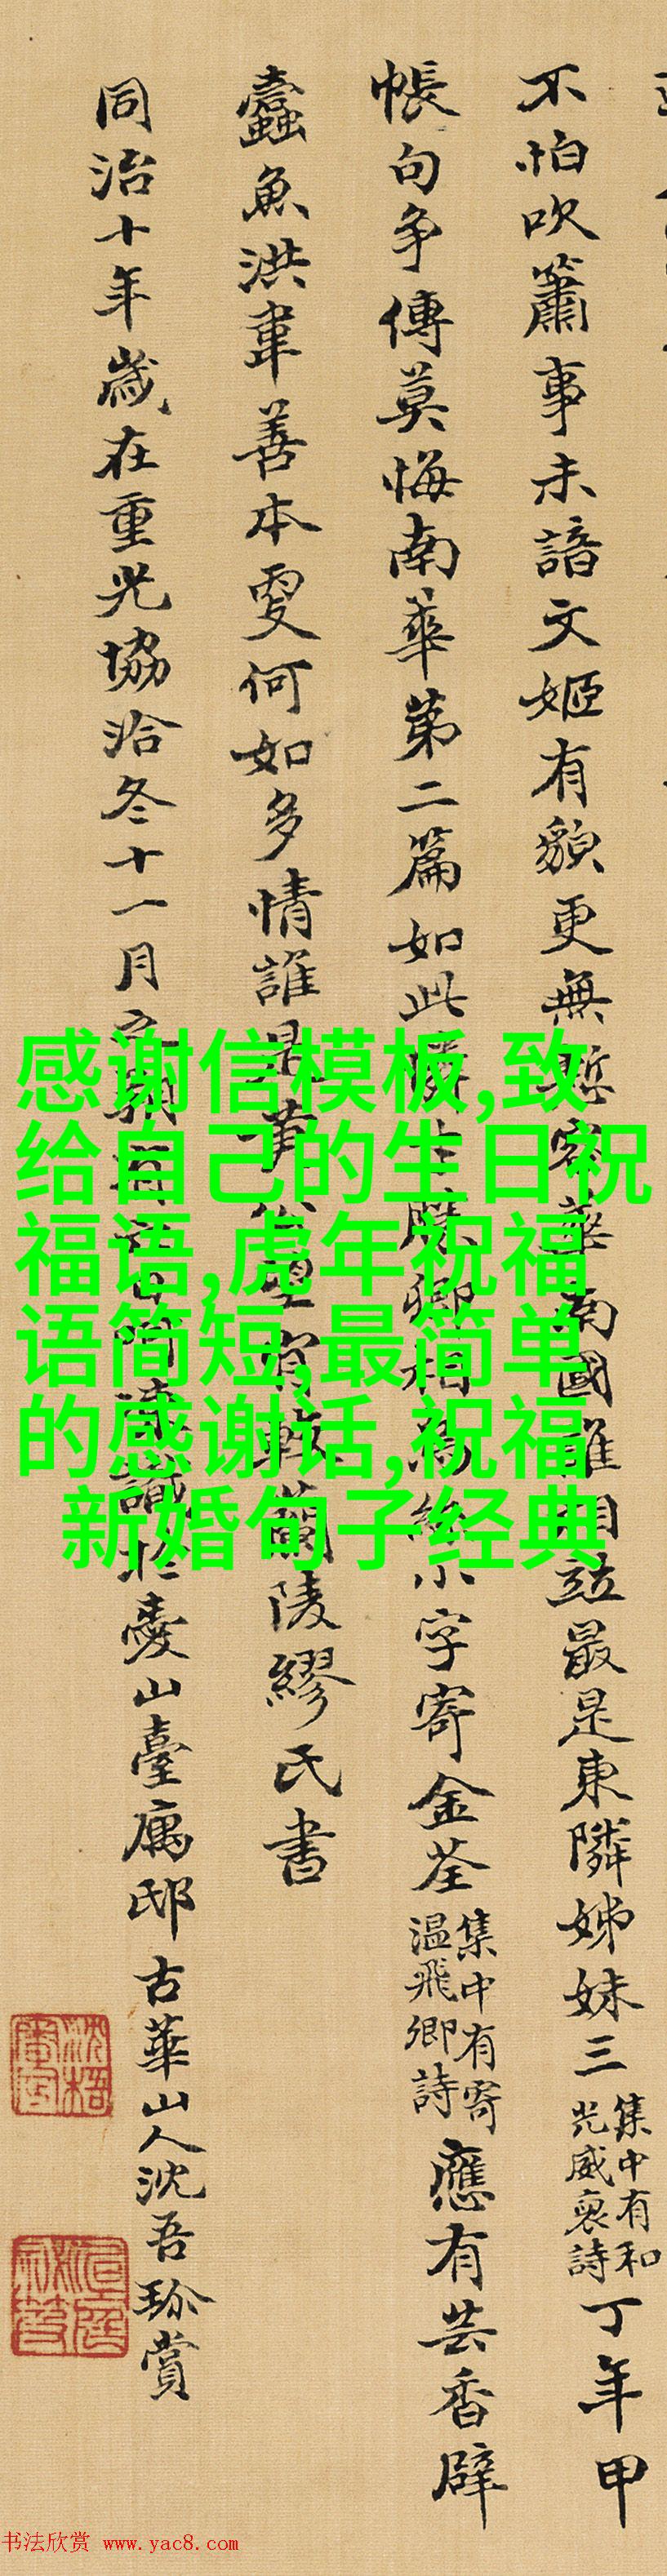 不怕吹簫事未諳文姬有貌更無慙容華南國誰相竝最是東隣姊妹三
集中有和
光威裒詩
丁年甲
帳句爭傳莫悔南華第二篇如此
卿相為
小字寄金荃
集中有寄
溫飛卿詩
應有芸香辟
蠹魚洪辜善本更何如多情誰是
蘭陵繆氏書
同治十年歲在重光協洽冬十一月之
識於
山臺寓邸古華山人沈吾珍賞
感谢信模板,致
给自己的生日祝
福语,虎年祝福
语简短,最简单
的感谢话,祝福
新婚句子经典
书法欣赏 www.yac8.com